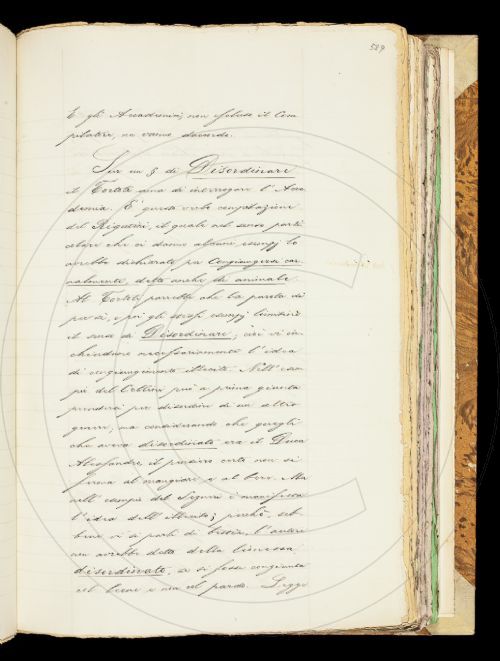 589
E gli Accademici, non escluso il Com
pilatore, ne vanno d'accordo.
Su un § di Disordinare
il Tortoli ama di interrogare l'Acca
demia. È questo verbo compilazione
del Rigutini, il quale nel senso parti
colare che ci danno alcuni esempj lo
avrebbe dichiarato per Congiungersi car
nalmente, detto anche di animali.
Al Tortoli parrebbe che la parola di
per sé, e poi gli stessi esempj
il senso di Disordinare, cioè vi in
chiudono necessariamente l'idea
di congiungimento illecito. Nell'esem
pio del Cellini può a prima giunta
prendersi per disordine di un altro
genere, ma considerando che quegli
che aveva disordinato era il Duca
Alessandro, il pensiero certo non si
ferma al mangiare e al bere. Ma
nell'esempio del Segneri è manifesta
l'idea dell'illecito; perché, seb
bene vi si parli di bestia, l'autore
non avrebbe detto della lionessa
disordinato, se si fosse congiunta
col leone e non col pardo. Leggo